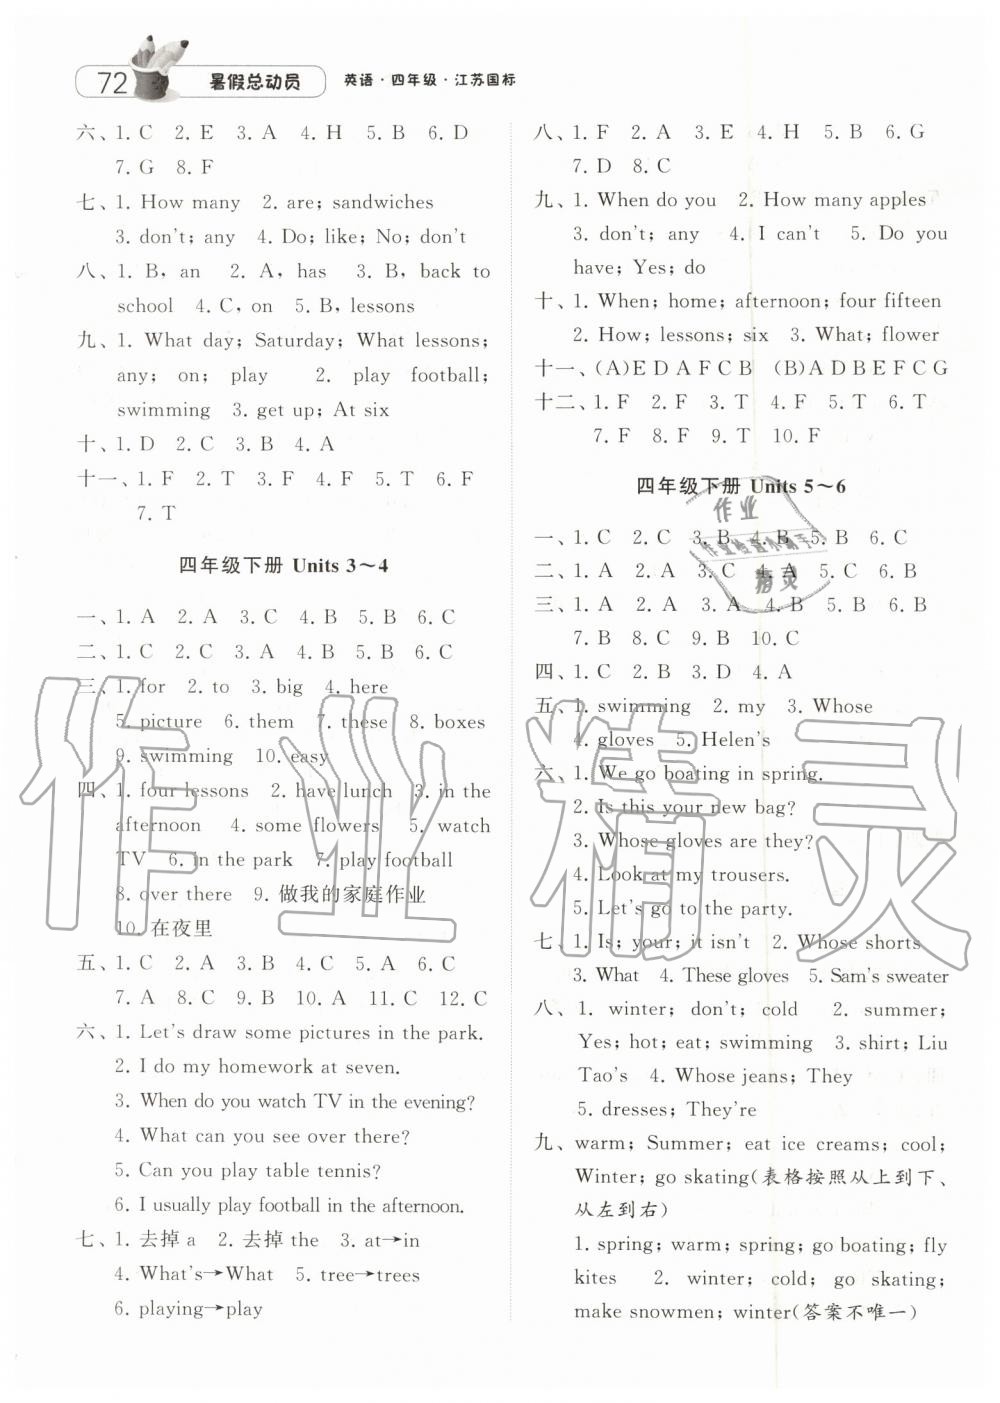 72
暑假总动员
英语·四年级·江苏国标
六、1. C 2. E 3. A 4. H 5. B 6. D
7. G 8. F
七、1. How many 2. are; sandwiches
3. don't; any 4. Do; like; No; don't
八、1. B, an 2. A, has 3. B, back to
school 4. C, on 5. B, lessons
九、1. What day; Saturday; What lessons;
any; on; play 2. play football;
swimming 3. get up; At six
十、1. D 2. C 3. B 4. A
十一、1. F 2. T 3. F 4. F 5. T 6. F
7. T
四年级下册 Units 3~4
一、1. A 2. A 3. C 4. B 5. B 6. C
二、1. C 2. C 3. A 4. B 5. B 6. C
三、1. for 2. to 3. big 4. here
5. picture 6. them 7. these 8. boxes
9. swimming 10. easy
四、1. four lessons 2. have lunch 3. in the
afternoon 4. some flowers 5. watch
TV 6. in the park 7. play football
8. over there 9. 做我的家庭作业
10. 在夜里
五、1. C 2. A 3. B 4. C 5. A 6. C
7. A 8. C 9. B 10. A 11. C 12. C
六、1. Let's draw some pictures in the park.
2. I do my homework at seven.
3. When do you watch TV in the evening?
4. What can you see over there?
5. Can you play table tennis?
6. I usually play football in the afternoon.
七、1. 去掉 a 2. 去掉 the 3. at→in
4. What's→What 5. tree→trees
6. playing→play
八、1. F 2. A 3. E 4. H 5. B 6. G
7. D 8. C
九、1. When do you 2. How many apples
3. don't; any 4. I can't 5. Do you
have; Yes; do
十、1. When; home; afternoon; four fifteen
2. How; lessons; six 3. What; flower
十一、(A)E D A F C B (B)A D B E F C G
十二、1. F 2. F 3. T 4. F 5. T 6. T
7. F 8. F 9. T 10. F
四年级下册 Units 5~6
一、1. C 2. C 3. B 4. B 5. B 6. C
二、1. A 2. A 3. C 4. A 5. C 6. B
三、1. A 2. A 3. A 4. B 5. B 6. B
7. B 8. C 9. B 10. C
四、1. C 2. B 3. D 4. A
五、1. swimming 2. my 3. Whose
4. gloves 5. Helen's
六、1. We go boating in spring.
2. Is this your new bag?
3. Whose gloves are they?
4. Look at my trousers.
5. Let's go to the party.
七、1. Is; your; it isn't 2. Whose shorts
3. What 4. These gloves 5. Sam's sweater
八、1. winter; don't; cold 2. summer;
Yes; hot; eat; swimming 3. shirt; Liu
Tao's 4. Whose jeans; They
5. dresses; They're
九、warm; Summer; eat ice creams; cool;
Winter; go skating(表格按照从上到下、
从左到右)
1. spring; warm; spring; go boating; fly
kites 2. winter; cold; go skating;
make snowmen; winter(答案不唯一)
作业
作业检查小帮手
精灵
作业精灵